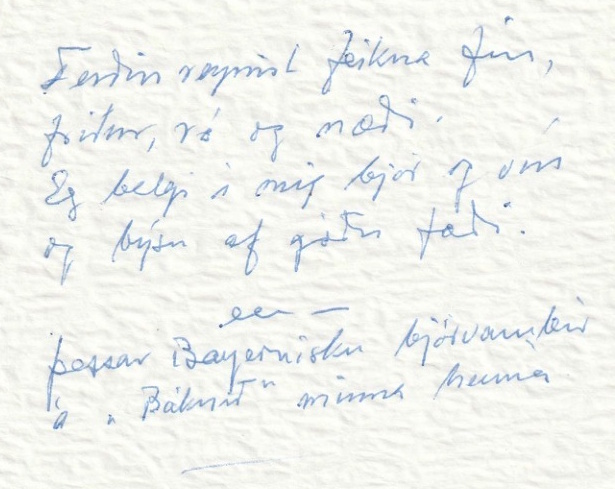 Ferðin reynist feikna fín,
friður, ró og næði.
Eg belgi í mig bjór og vín
og býsn af góðu fæði.
en —
þessar Bayernisku bjórvambir
á "Báknið" minna heima